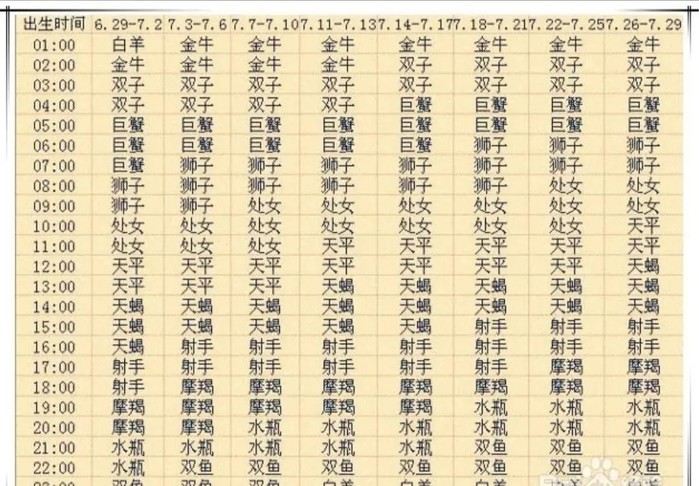 出生时间 6.29-7.2 7.3-7.6 7.7-7.10 7.11-7.13 7.14-7.17 7.18-7.21 7.22-7.25 7.26-7.29
01:00 白羊 金牛 金牛 金牛 金牛 金牛 金牛 金牛
02:00 金牛 金牛 金牛 金牛 双子 双子 双子 双子
03:00 双子 双子 双子 双子 双子 双子 双子 双子
04:00 双子 双子 双子 双子 巨蟹 巨蟹 巨蟹 巨蟹
05:00 巨蟹 巨蟹 巨蟹 巨蟹 巨蟹 巨蟹 巨蟹 巨蟹
06:00 巨蟹 巨蟹 巨蟹 巨蟹 巨蟹 狮子 狮子 狮子
07:00 巨蟹 狮子 狮子 狮子 狮子 狮子 狮子 狮子
08:00 狮子 狮子 狮子 狮子 狮子 狮子 处女 处女
09:00 狮子 狮子 处女 处女 处女 处女 处女 处女
10:00 处女 处女 处女 处女 处女 处女 处女 天平
11:00 处女 处女 处女 天平 天平 天平 天平 天平
12:00 天平 天平 天平 天平 天平 天平 天平 天蝎
13:00 天平 天平 天平 天蝎 天蝎 天蝎 天蝎 天蝎
14:00 天蝎 天蝎 天蝎 天蝎 天蝎 天蝎 天蝎 天蝎
15:00 天蝎 天蝎 天蝎 天蝎 天蝎 射手 射手 射手
16:00 天蝎 射手 射手 射手 射手 射手 射手 射手
17:00 射手 射手 射手 射手 射手 射手 摩羯 摩羯
18:00 射手 摩羯 摩羯 摩羯 摩羯 摩羯 摩羯 摩羯
19:00 摩羯 摩羯 摩羯 摩羯 摩羯 水瓶 水瓶 水瓶
20:00 摩羯 摩羯 水瓶 水瓶 水瓶 水瓶 水瓶 水瓶
21:00 水瓶 水瓶 水瓶 水瓶 水瓶 双鱼 双鱼 双鱼
22:00 水瓶 双鱼 双鱼 双鱼 双鱼 双鱼 双鱼 双鱼
23:00 双鱼 双鱼 双鱼 白羊 白羊 白羊